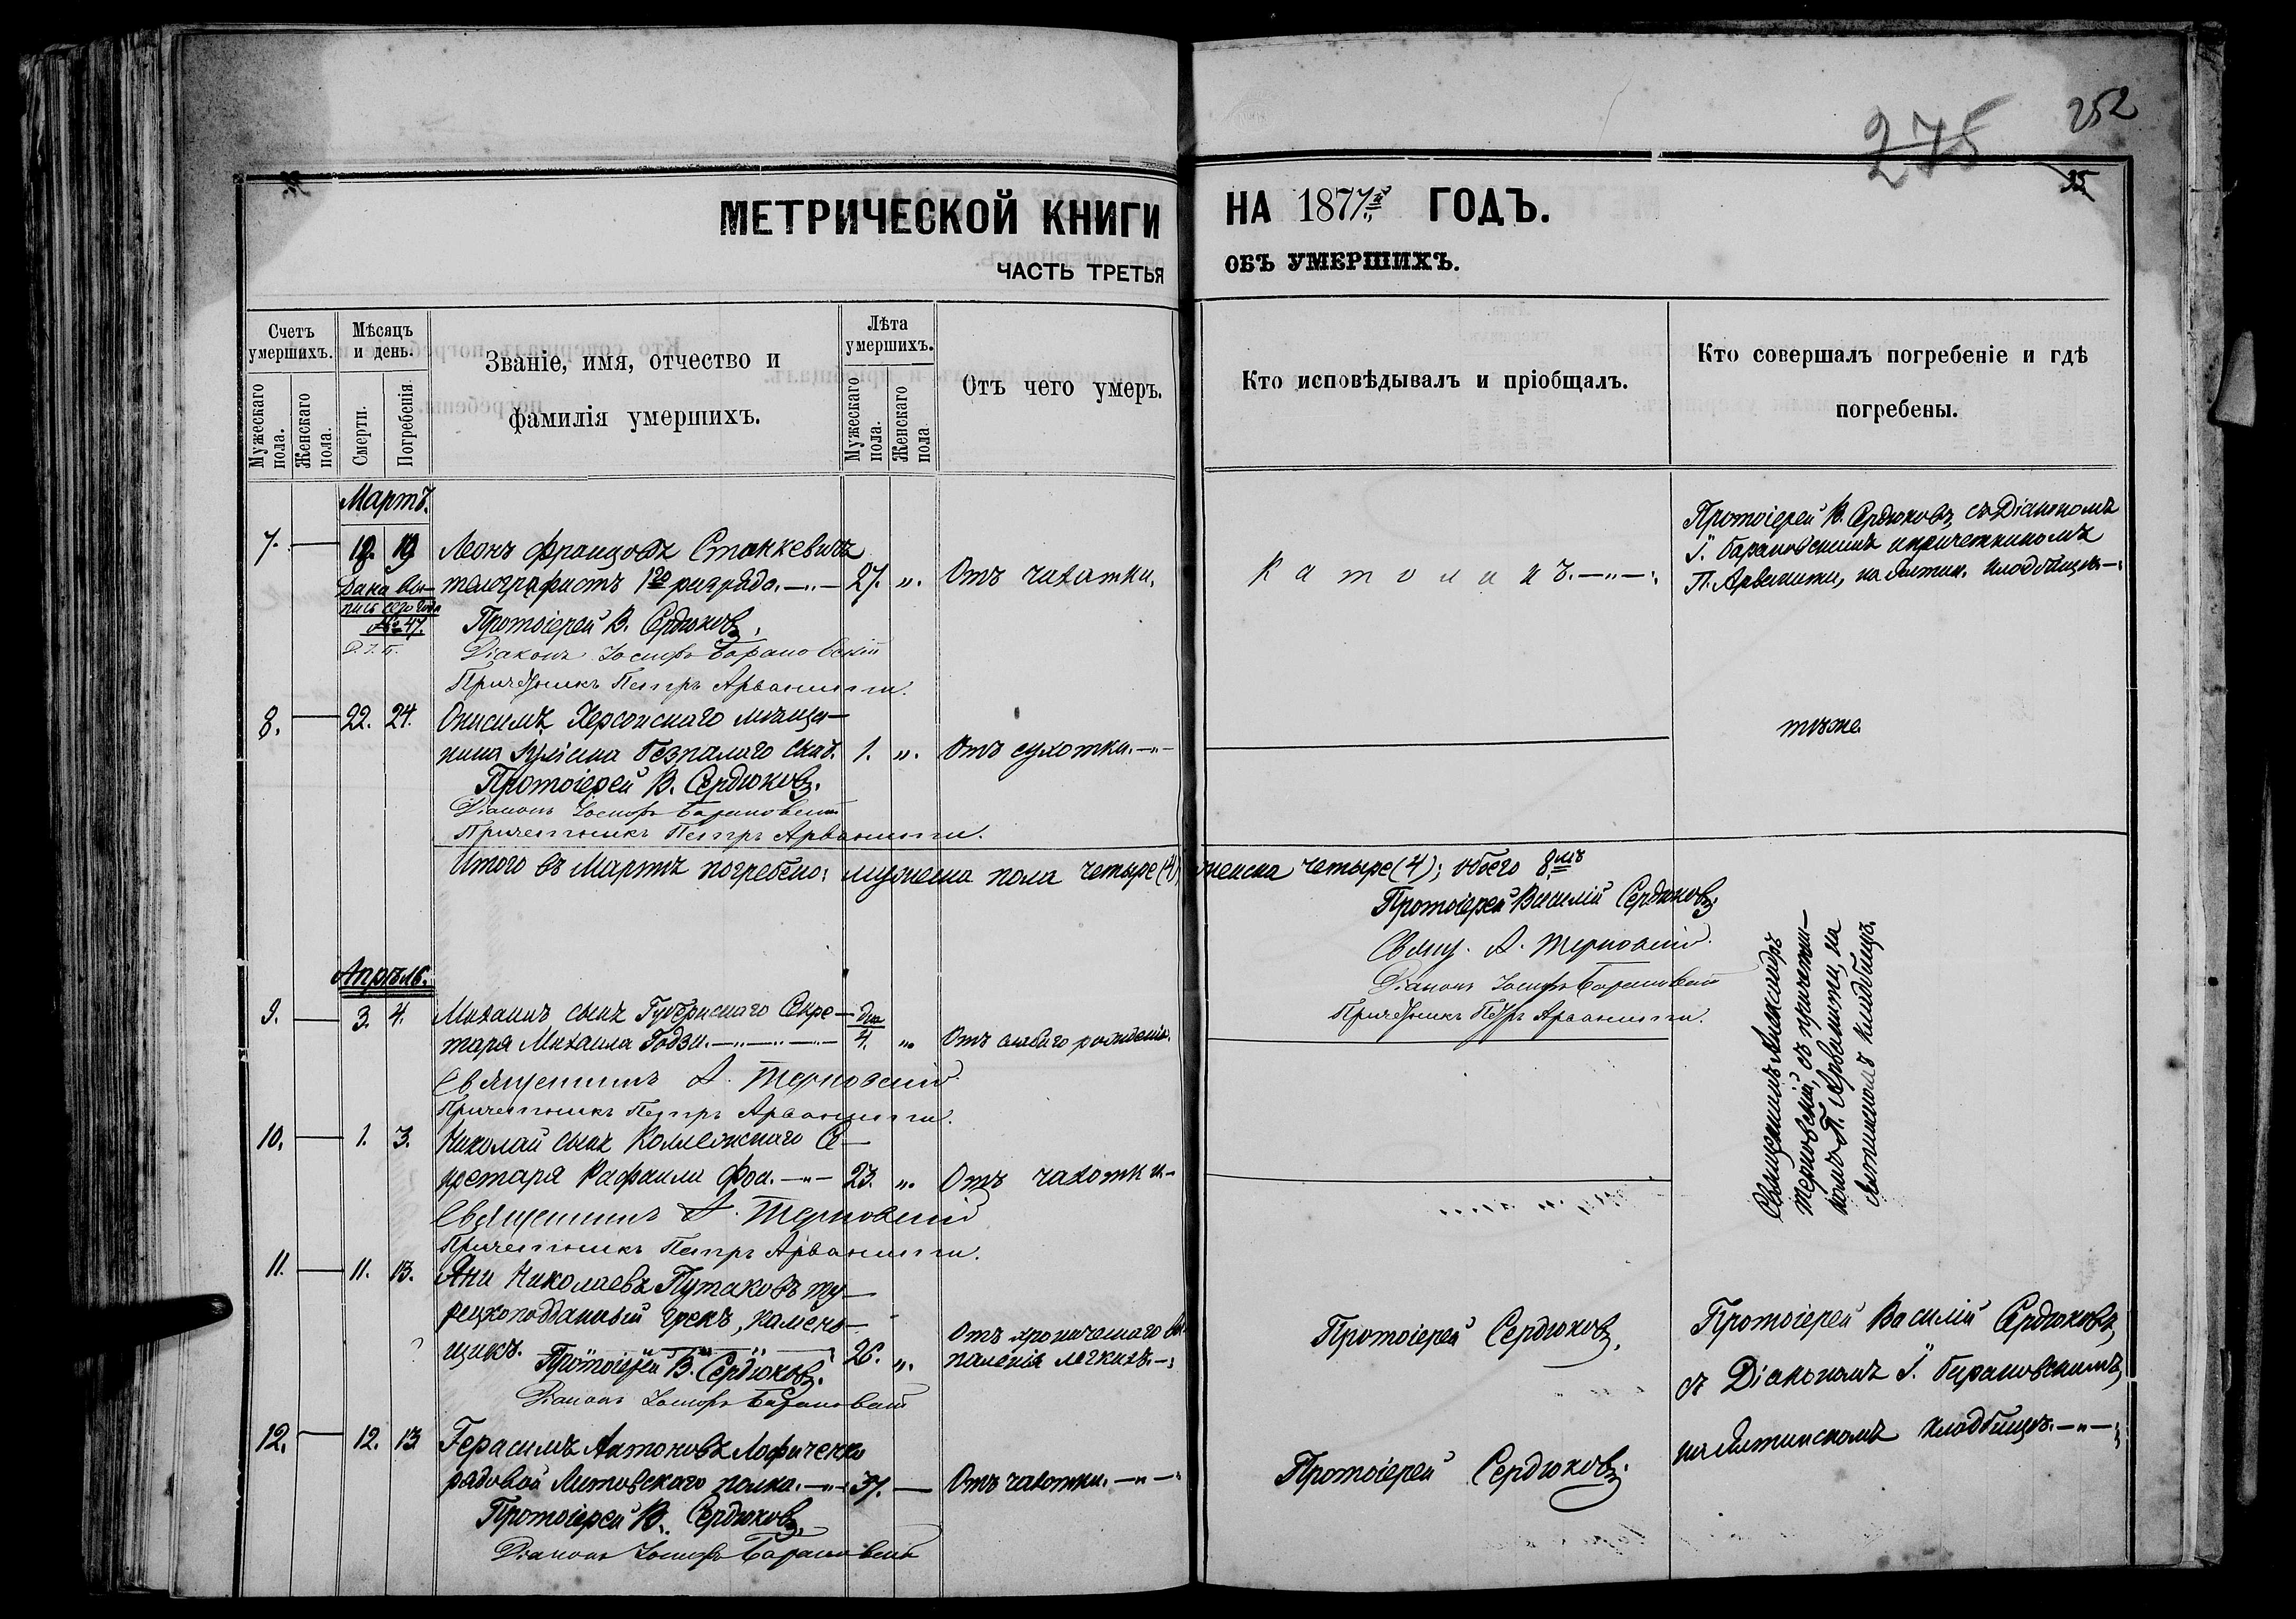 252
275
35
МЕТРИЧЕСКОЙ КНИГИ НА 1877й ГОДЪ.
ЧАСТЬ ТРЕТЬЯ ОБЪ УМЕРШИХЪ.
Счетъ умершихъ.
Мужескаго пола.
Женскаго пола.
Мѣсяцъ и день.
Смерти.
Погребенія
Званіе, имя, отчество и
фамилія умершихъ.
Лѣта умершихъ.
Мужескаго пола.
Женскаго пола
Отъ чего умеръ.
Кто исповѣдывалъ и пріобщалъ.
Кто совершалъ погребеніе и гдѣ
погребены.
Мартъ.
7. 18. 19 Леонъ Францовъ Станкевичъ
телеграфистъ 1го разряда. 27. „. Отъ чахотки.
Католикъ.
Протоіерей В. Сердюковъ, съ Діакономъ
І. Барановскимъ и причетникомъ
П. Арванити, на Ялтин. кладбищѣ
Дана вы-
пись сего года
№ 47.
Протоіерей В. Сердюковъ.
Діаконъ Іосифъ Барановскій
Причетникъ Петръ Арванити.
8. 22. 24. Онисимъ, Херсонскаго мѣща-
нина Безпалаго сынъ. 1. „. Отъ сухотки.
тѣже
Протоіерей В. Сердюковъ.
Діаконъ Іосифъ Барановскій
Причетникъ Петръ Арванити.
Итого въ Мартѣ погребено: мужеска пола четыре (4), женска четыре (4); обоего 8мь
Протоіерей Василій Сердюковъ.
Свящ. А. Терновскій.
Діаконъ Іосифъ Барановскій
Причетникъ Петръ Арванити.
Апрѣль.
9. 3. 4. Михаилъ сынъ Губернскаго Секре-
таря Михаила Годзи. дни 4. „ Отъ слабаго рожденія.
Священникъ А. Терновскій.
Причетникъ Петръ Арванити.
Священникъ Александръ
Терновскій, съ причетни-
комъ П. Арванити, на
Ялтинскомъ кладбищѣ.
10. 1. 3. Николай сынъ Коллежскаго Се-
кретаря Рафаила Фоа. 23. „. Отъ чахотки
Священникъ А. Терновскій
Причетникъ Петръ Арванити.
11. 11. 13. Яни Николаевъ Путаковъ ту-
рецкоподданный грекъ, камень-
щикъ. 26. „. Отъ хроническаго вос
паленія легкихъ.
Протоіерей Сердюковъ.
Протоіерей Василій Сердюковъ
съ Діакономъ І. Барановскимъ,
на Ялтинскомъ кладбищѣ.
Протоіерей В. Сердюковъ.
Діаконъ Іосифъ Барановскій
12. 12. 13 Герасимъ Антоновъ Лафиченко
рядовой Литовскаго полка. 37. Отъ чахотки.
Протоіерей Сердюковъ.
Протоіерей В. Сердюковъ.
Діаконъ Іосифъ Барановскій